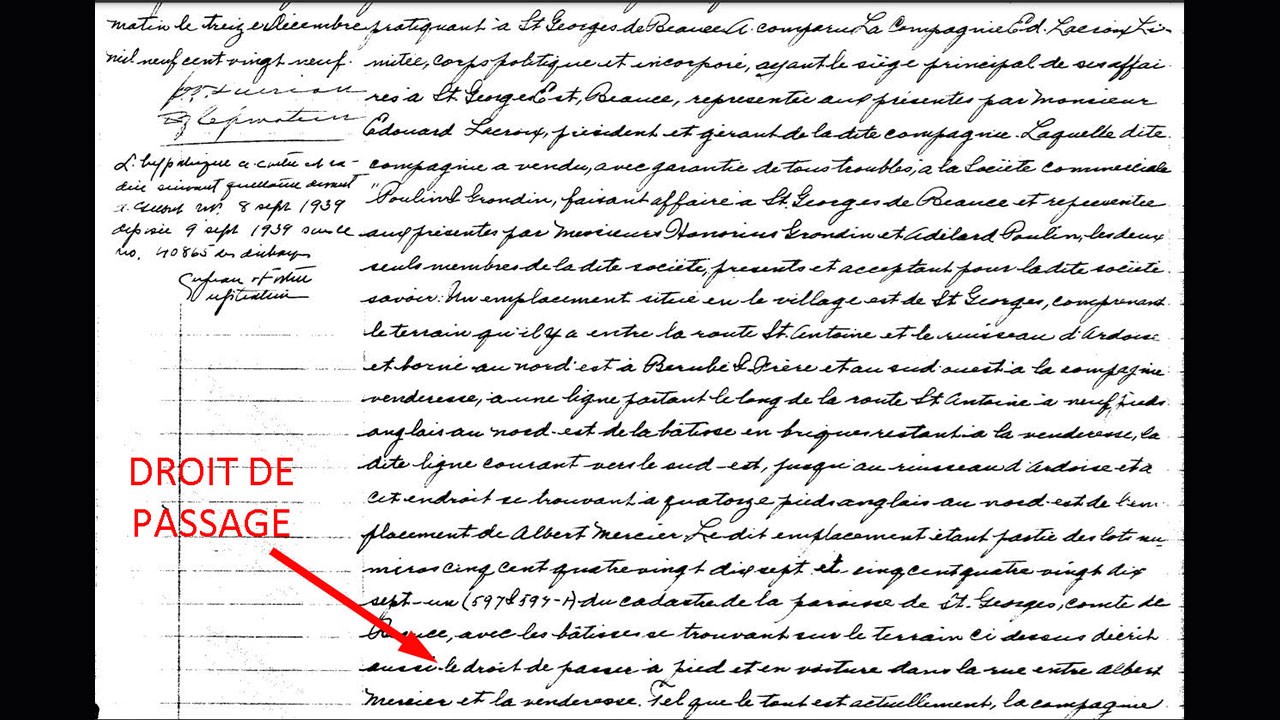 matin le treize décembre
mil neuf cent vingt neuf.
L'hypothèque a été
8 sept 1939
déposée 9 sept 1939 sous le
no. 40865
DROIT DE
PASSAGE
pratiquant à St Georges de Beauce. A comparu La Compagnie Ed. Lacroix Li-
mitée, corps politique et incorporé, ayant le siège principal de ses affai-
res à St. Georges Est, Beauce, représentée aux présentes par Monsieur
Edouard Lacroix, président et gérant de la dite compagnie. Laquelle dite
compagnie a vendu, avec garantie de tous troubles, à la Société commerciale
"Poulin & Grondin, faisant affaire à St. Georges de Beauce et représentée
aux présentes par Messieurs Honorius Grondin et Adélard Poulin, les deux
seuls membres de la dite société, présents et acceptant pour la dite société
savoir: Un emplacement situé en le village est de St Georges, comprenant
le terrain qu'il y a entre la route St. Antoine et le ruisseau d'Ardoise
et borné au nord est à Berubé & Frère et au sud ouest à la compagnie
venderesse, à une ligne partant le long de la route St. Antoine à neuf pieds
anglais au nord-est de la bâtisse en briques restant à la venderesse, la
dite ligne courant vers le sud-est, jusqu'au ruisseau d'Ardoise et à
cet endroit se trouvant à quatorze pieds anglais au nord-est de l'em-
placement de Albert Mercier, Le dit emplacement étant partie des lots nu-
méros cinq cent quatre vingt dix sept et cinq cent quatre vingt dix
sept-un (597 & 597-1) du cadastre de la paroisse de St. Georges, comté de
Beauce, avec les bâtisses se trouvant sur le terrain ci dessus décrit
aussi le droit de passer à pied et en voiture dans la rue entre Albert
Mercier et la venderesse. Tel que le tout est actuellement, la compagnie